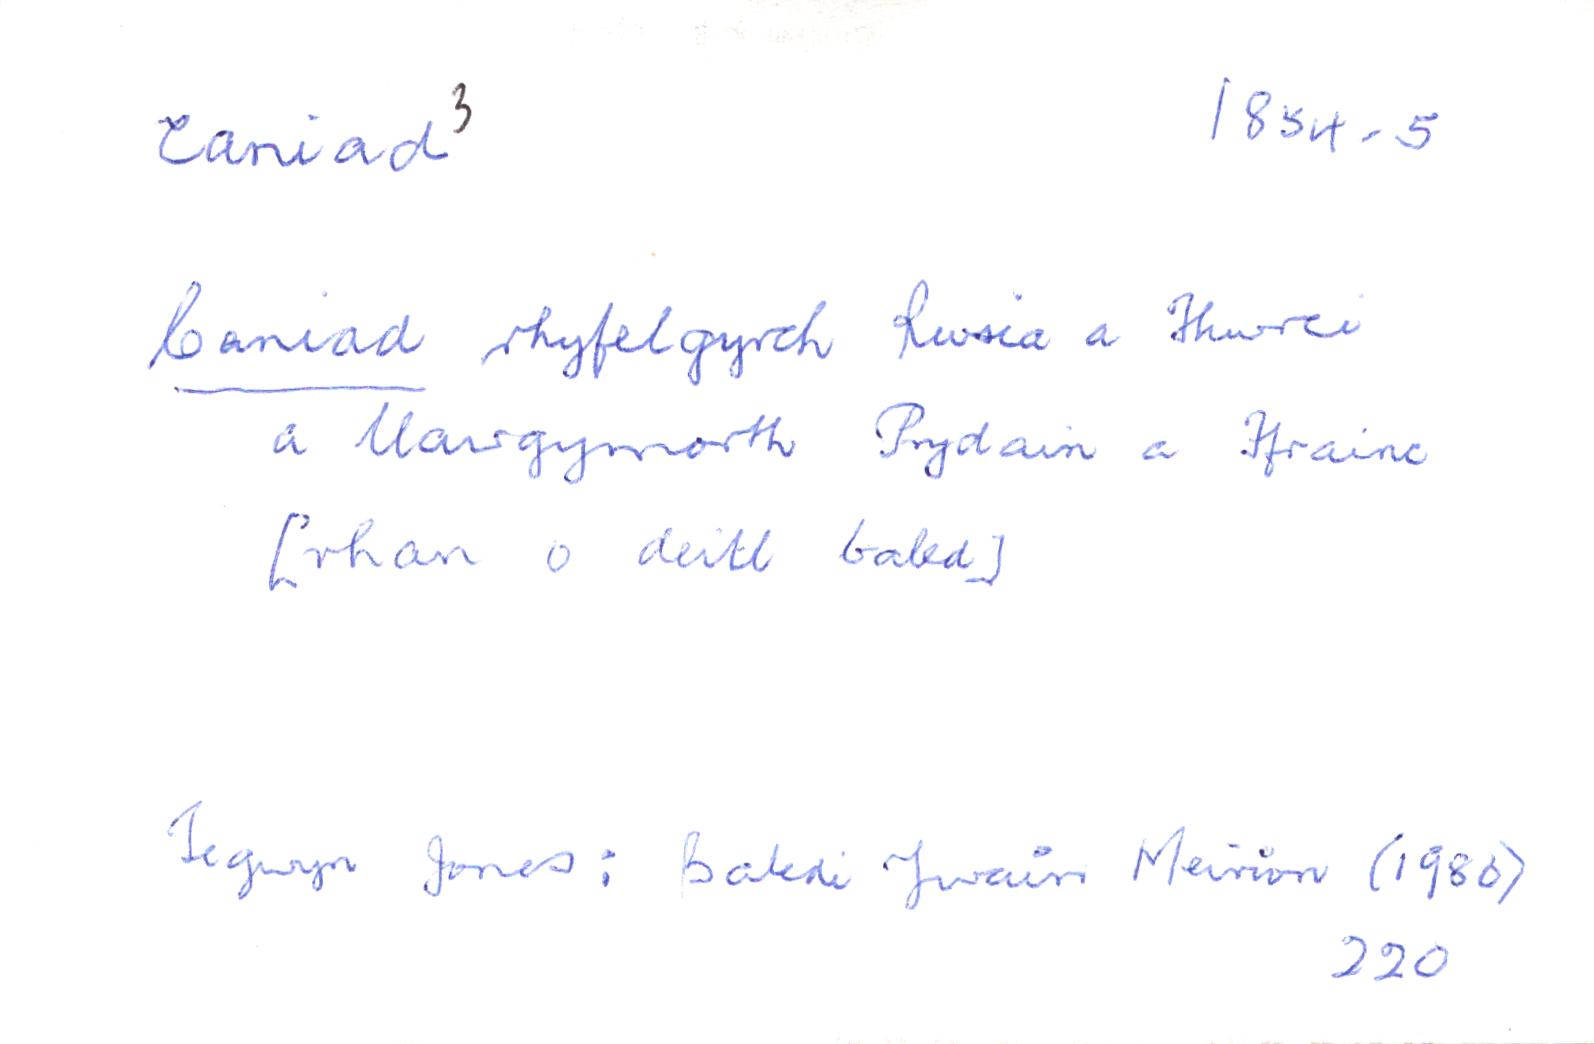 caniad³ 1854-5
Caniad rhyfelgyrch Rwsia a Thwrci
a llawgymorth Prydain a Ffrainc
[rhan o deitl baled]
Tegwyn Jones: Baledi Ywain Meirion (1980)
220